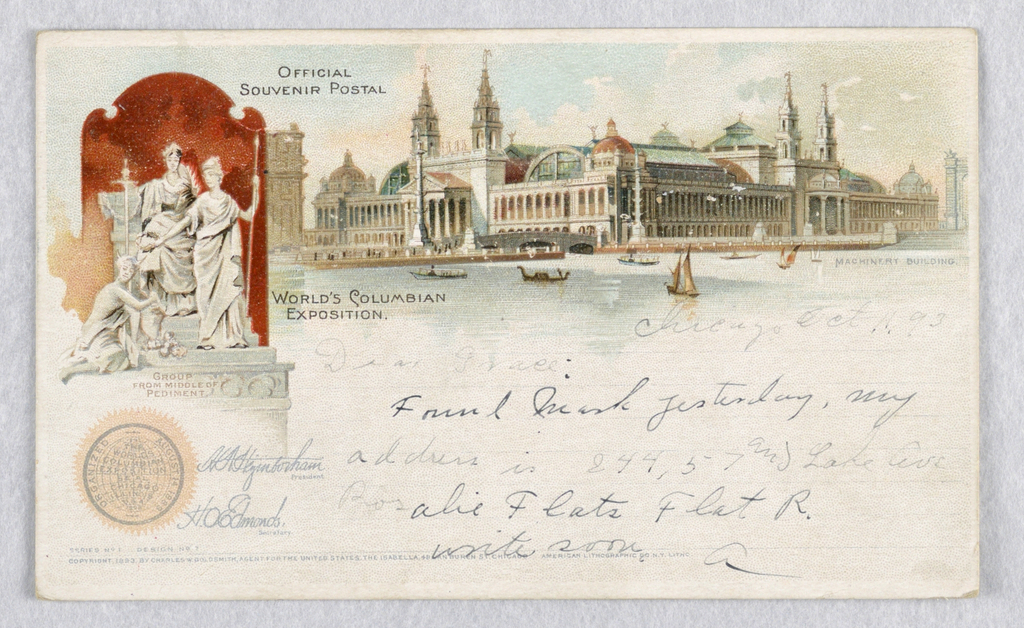 OFFICIAL
SOUVENIR POSTAL
WORLD'S COLUMBIAN
EXPOSITION.
MACHINERY BUILDING.
GROUP
FROM MIDDLE OF
PEDIMENT.
Chicago Oct 1, 93
Dear Grace:
Found Mark yesterday, my
address is 244, 57 and Lake Ave
Rosalie Flats Flat R.
write soon
A
ORGANIZED AUGUST
THE WORLD'S COLUMBIAN EXPOSITION
H.N. Higinbotham
President.
H.O. Edmonds.
Secretary.
SERIES No 1 DESIGN No
COPYRIGHT, 1893, BY CHARLES W. GOLDSMITH, AGENT FOR THE UNITED STATES, THE ISABELLA, VAN BUREN ST. CHICAGO. AMERICAN LITHOGRAPHIC CO. N.Y. LITHO.